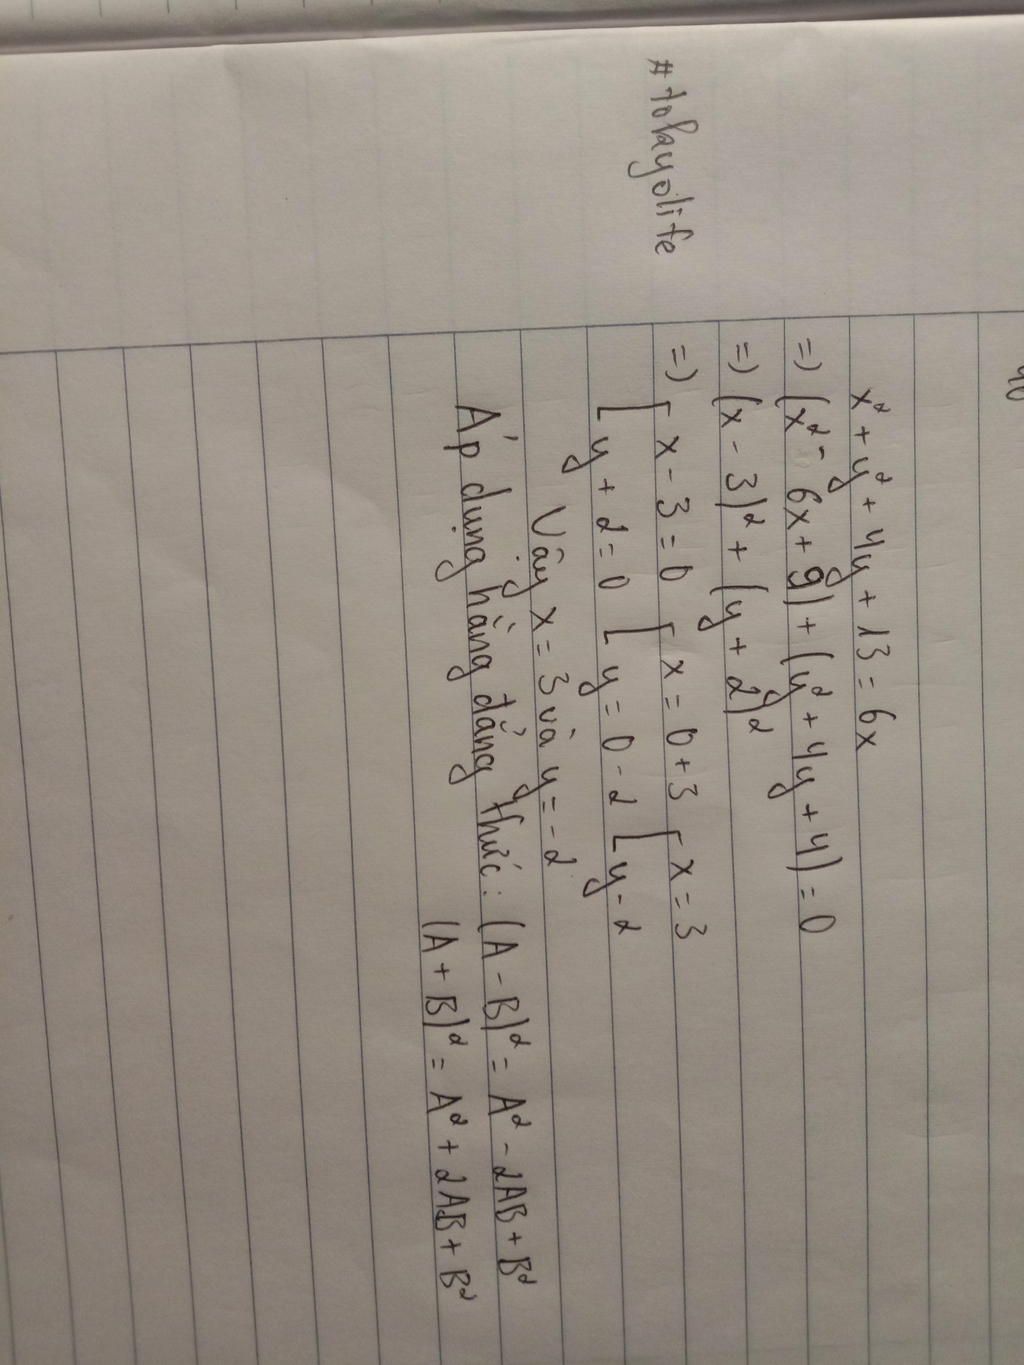 #tokayolife
x² + y² + 4y + 13 = 6x
=) (x² - 6x + 9) + (y² + 4y + 4) = 0
=) (x - 3)² + (y + 2)²
=) [ x - 3 = 0 [ x = 0 + 3 [ x = 3
[ y + 2 = 0 [ y = 0 - 2 [ y - 2
Vây x = 3 và y = - 2
Áp dụng hằng đẳng thức : (A - B)² = A² - 2AB + B²
(A + B)² = A² + 2AB + B²